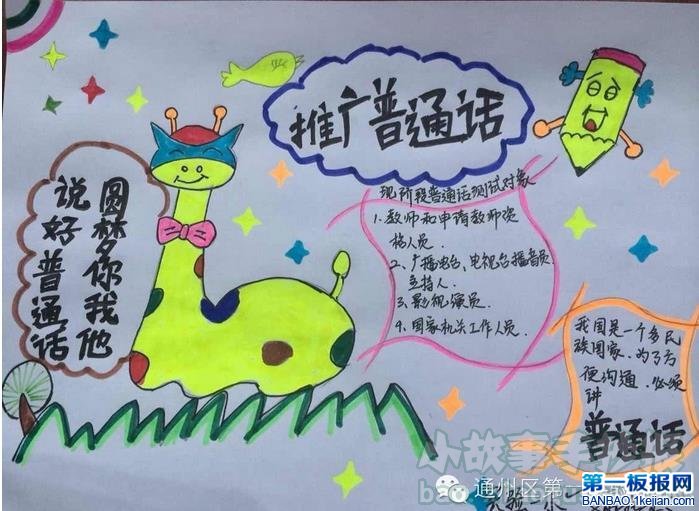 推广普通话
说好普通话
圆梦你我他
现阶段普通话测试对象
1、教师和申请教师资
格人员.
2、广播电台、电视台播音员
主持人.
3、影视演员.
4、国家机关工作人员.
我国是一个多民
族国家.为了方
便沟通.必须
讲
普通话
小故事手
通州区第一
第一板报网
BANBAO.1kejian.com